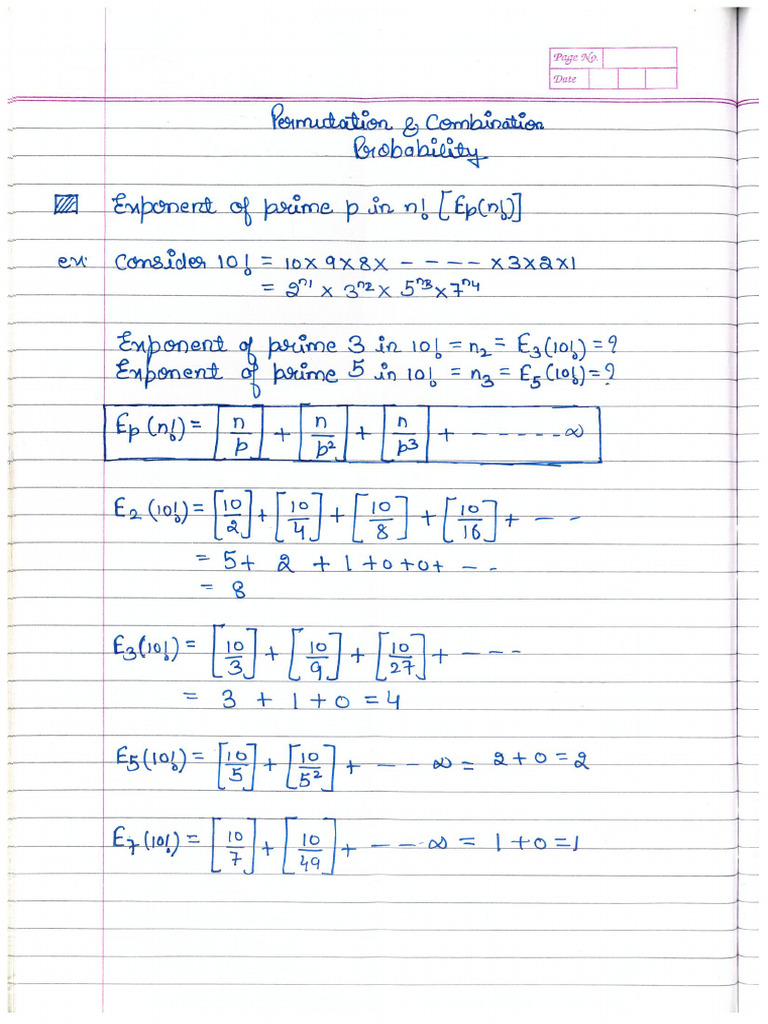 Page No.
Date
Permutation & Combination
Probability
Exponent of prime p in n! [Ep(n!)]
ex: Consider 10! = 10 × 9 × 8 × - - - - × 3 × 2 × 1
= 2^n1 × 3^n2 × 5^n3 × 7^n4
Exponent of prime 3 in 10! = n₂ = E₃(10!) = ?
Exponent of prime 5 in 10! = n₃ = E₅(10!) = ?
Ep(n!) = [n/p] + [n/p²] + [n/p³] + - - - - - - ∞
E₂(10!) = [10/2] + [10/4] + [10/8] + [10/16] + - - -
= 5 + 2 + 1 + 0 + 0 + - - -
= 8
E₃(10!) = [10/3] + [10/9] + [10/27] + - - - -
= 3 + 1 + 0 = 4
E₅(10!) = [10/5] + [10/5²] + - - - ∞ = 2 + 0 = 2
E₇(10!) = [10/7] + [10/49] + - - - - ∞ = 1 + 0 = 1